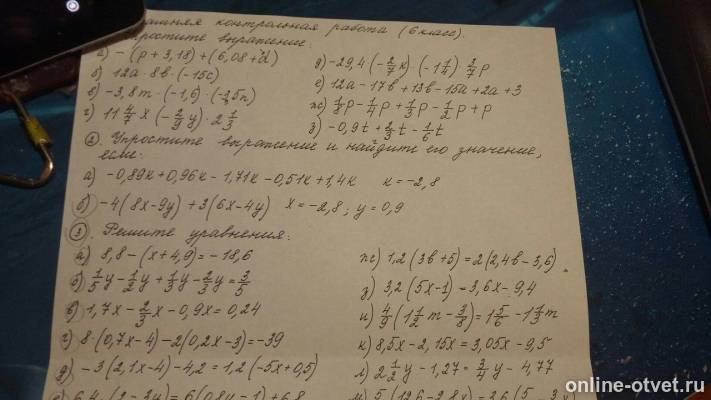 контрольная работа (6 класс).
выражение:
а) -(p + 3,18) + (6,08 + d)
б) 12a · 8b · (-15c)
в) -3,8m · (-1,6) ·
г) 11 4/7 x (-2/9 y) · 2 1/3
д) -29,4 (-2/7 x) · (-1 1/4) · 3/7 p
е) 12a - 17b + 13b - 15a + 2a + 3
ж) 1/8 p - 1/4 p + 1/3 p - 1/2 p + p
з) -0,9t + 2/3 t - 1/6 t
② Упростите выражение и найдите его значение,
если:
а) -0,89k + 0,96k - 1,71k - 0,51k + 1,4k k = -2,8
б) -4(8x - 9y) + 3(6x - 4y) x = -2,8; y = 0,9
③ Решите уравнения:
а) 8,8 - (x + 4,9) = -18,6
б) 1/5 y - 1/2 y + 1/3 y - 2/3 y = 3/5
в) 1,7x - 2/3 x - 0,9x = 0,24
г) 8 · (0,7x - 4) - 2(0,2x - 3) = -39
д) -3(2,1x - 4) - 4,2 = 1,2(-5x + 0,5)
ж) 1,2(3b + 5) = 2(2,4b - 3,6)
з) 3,2(5x - 1) = 3,6x - 9,4
и) 4/9 (1 1/2 m - 3/8) = 1 5/6 - 1 1/3 m
к) 8,5x - 2,15x = 3,05x - 9,5
л) 2 1/2 y - 1,27 = 3/4 y - 4,77
online-otvet.ru